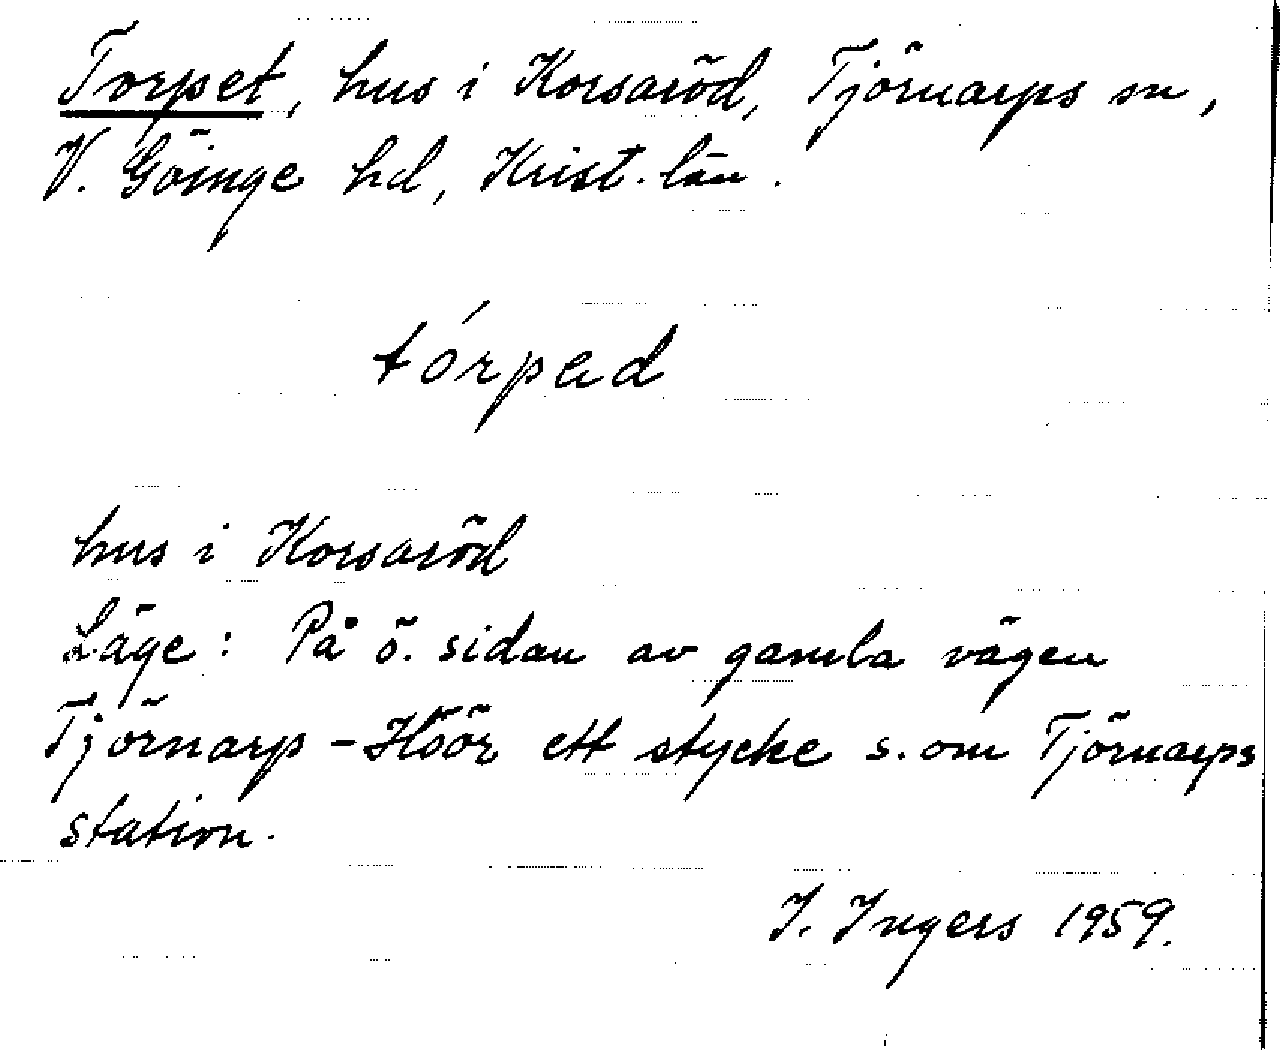 Torpet, hus i Korsaröd, Tjörnarps sn,
V. Göinge hd, Krist. län.
tórpad
hus i Korsaröd
Läge: På ö. sidan av gamla vägen
Tjörnarp - Höör ett stycke s. om Tjörnarps
station.
I. Ingers 1959.